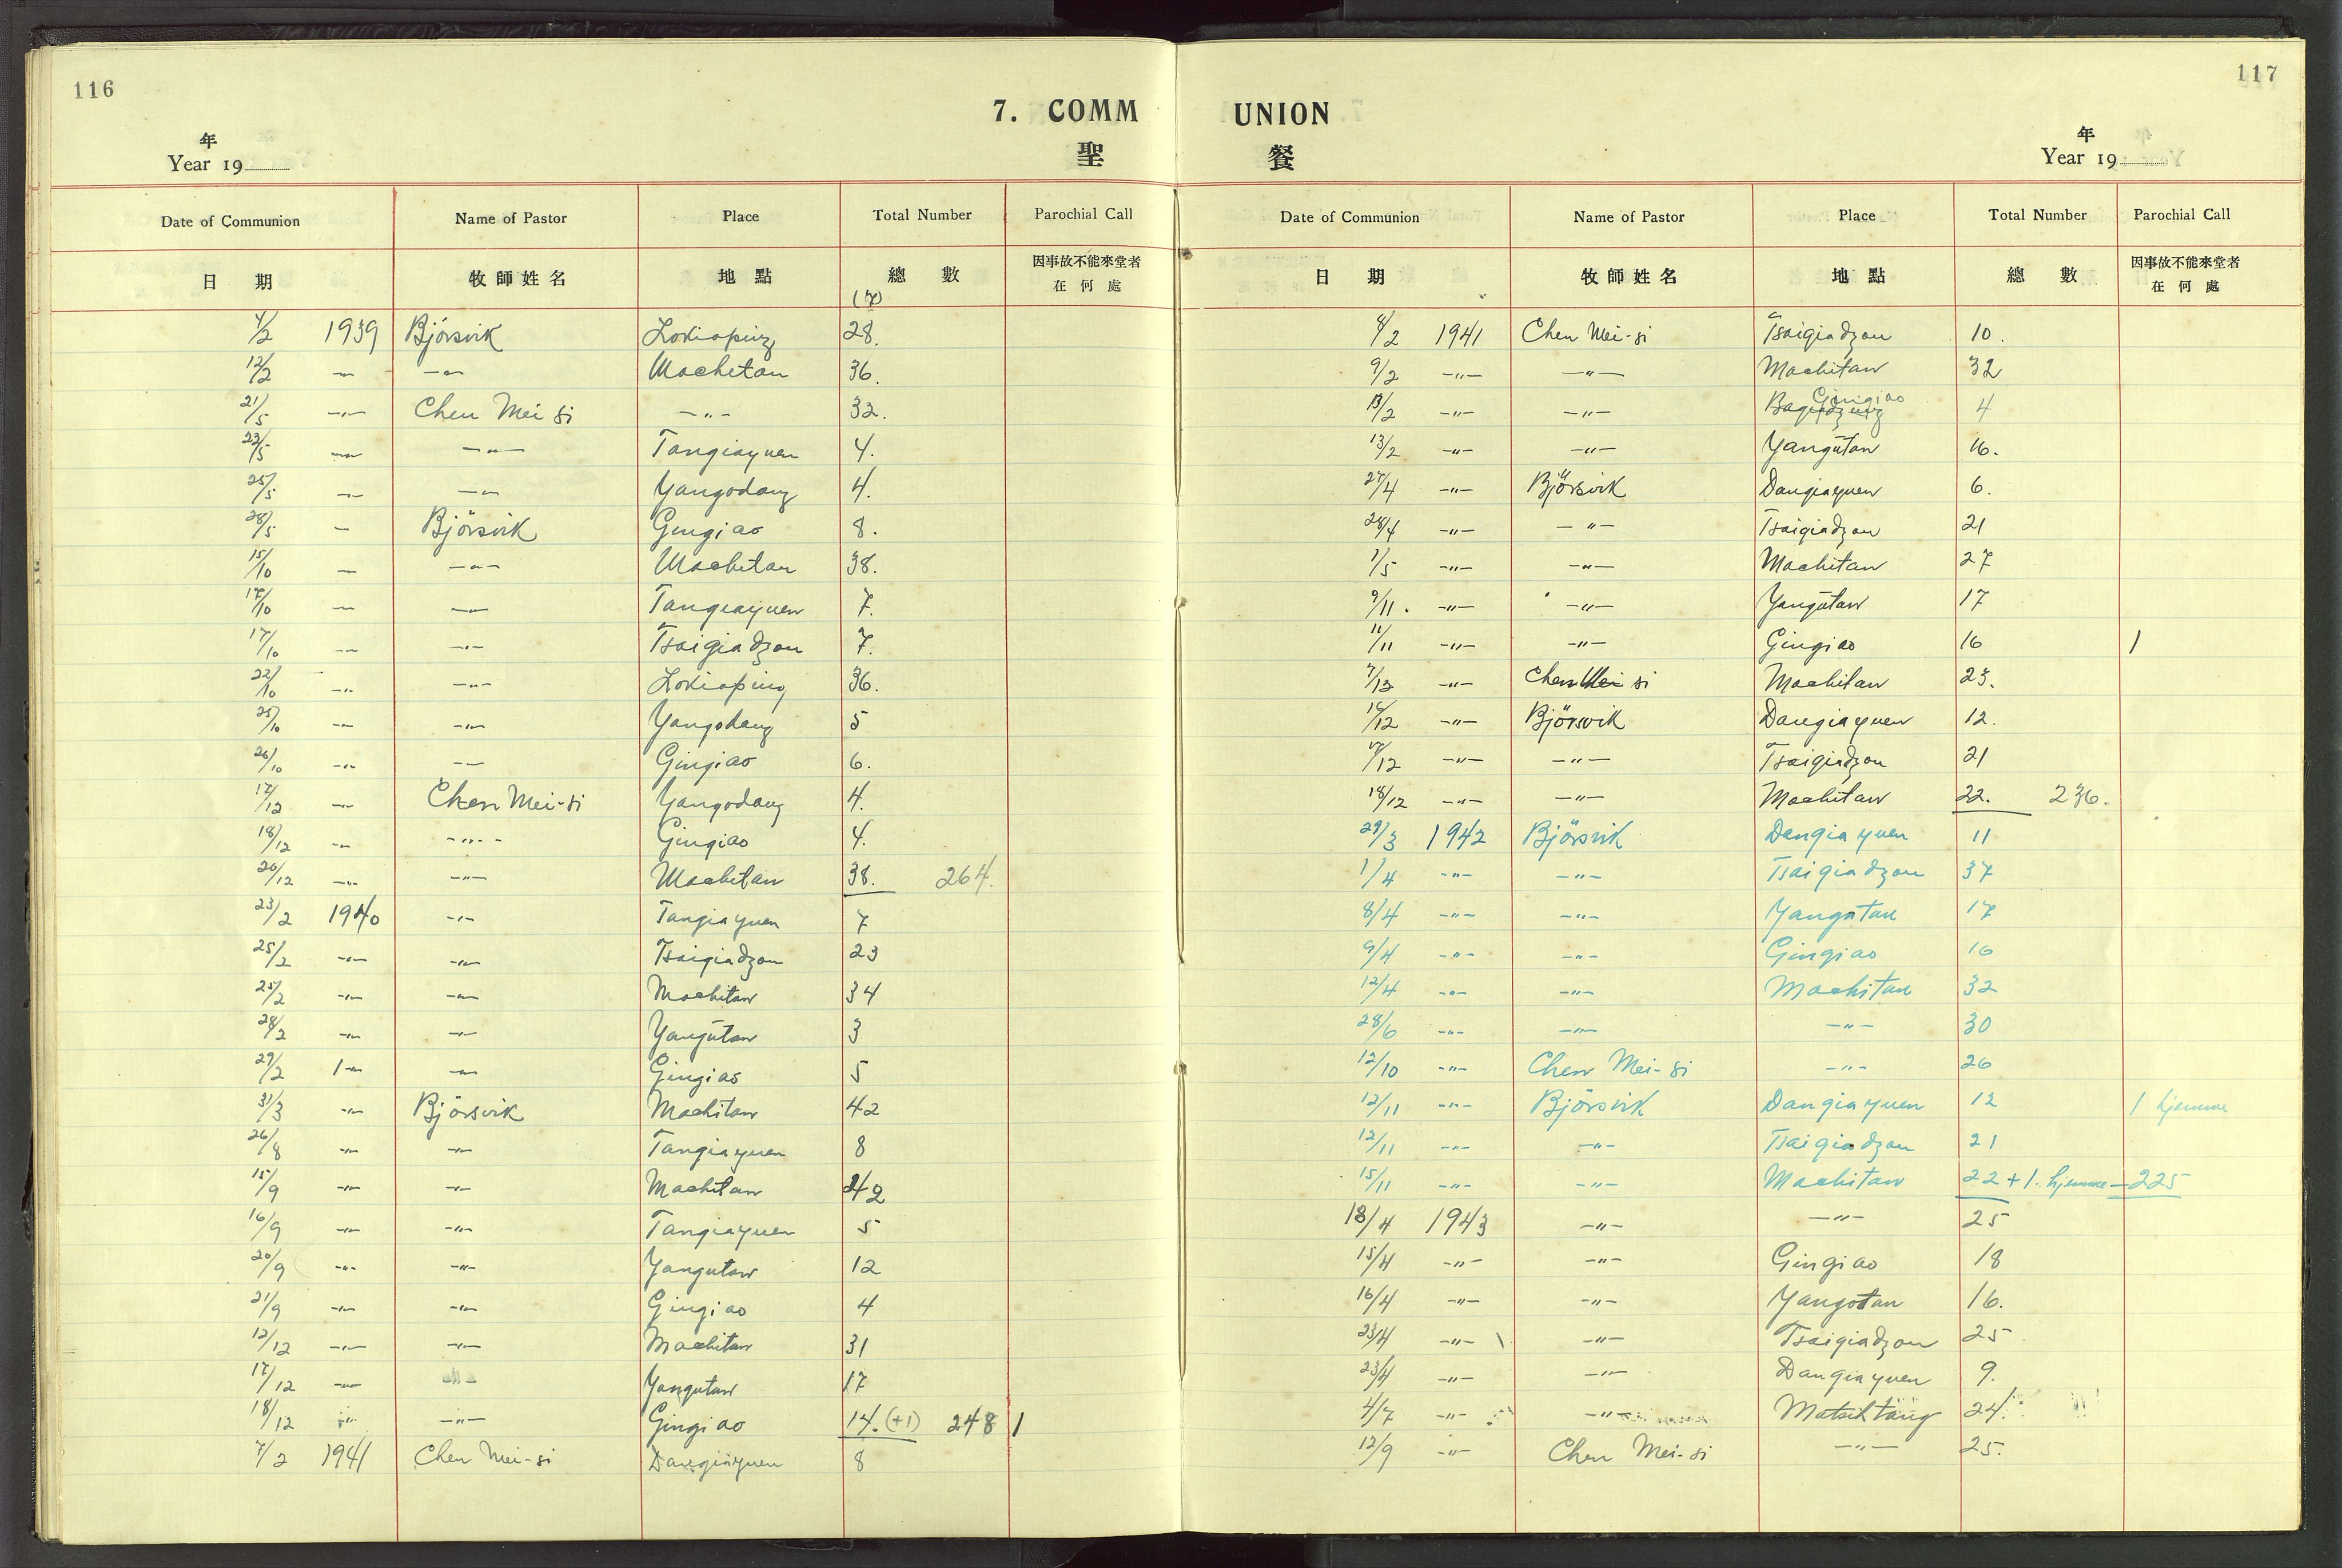 116
7. COMM
年
Year 19
聖
Date of Communion Name of Pastor Place Total Number Parochial Call
日 期 牧師姓名 地 點 總 數 因事故不能來堂者
在 何 處
(7)
4/2 1939 Björsvik Lokiaping 28.
12/2 –"– –"– Machetan 36.
21/5 –"– Chen Mei si –"– 32.
23/5 –"– –"– Tangiayuen 4.
25/5 –"– –"– Yangodang 4.
28/5 – Björsvik Gingiao 8.
15/10 – –"– Machetan 38.
17/10 – –"– Tangiayuen 7.
17/10 –"– –"– Tsaigiadzou 7.
22/10 –"– –"– Lokiaping 36.
25/10 –"– –"– Yangodang 5
26/10 –"– –"– Gingiao 6.
17/12 –"– Chen Mei-si Yangodang 4.
18/12 –"– –"– Gingiao 4.
20/12 –"– –"– Machetan 38. 264.
23/2 1940 –"– Tangiayuen 7
25/2 –"– –"– Tsaigiadzou 23
25/2 –"– –"– Machitan 34
28/2 –"– –"– Yangutan 3
29/2 –"– –"– Gingiao 5
31/3 –"– Björsvik Machitan 42
26/8 –"– –"– Tangiayuen 8
15/9 –"– –"– Machitan 42
16/9 –"– –"– Tangiayuen 5
20/9 –"– –"– Yangutan 12
21/9 –"– –"– Gingiao 4
12/12 –"– –"– Machitan 31
17/12 –"– Yangutan 17
18/12 –"– –"– Gingiao 14. (+1) 248 1
7/2 1941 Chen Mei-si Dangiayuen 8
117
UNION
年
Year 19
餐
Date of Communion Name of Pastor Place Total Number Parochial Call
日 期 牧師姓名 地 點 總 數 因事故不能來堂者
在 何 處
8/2 1941 Chen Mei-si Tsaigiadzou 10.
9/2 –"– –"– Machitan 32
13/2 –"– –"– Gingiao 4
13/2 –"– –"– Yangutan 16.
27/4 –"– Björsvik Dangiayuen 6.
28/4 –"– –"– Tsaigiadzou 21
1/5 –"– –"– Machitan 27
9/11. –"– –"– Yangutan 17
11/11 –"– –"– Gingiao 16 1
7/12 –"– Chen Mei si Machitan 23.
16/12 –"– Björsvik Dangiayuen 12.
17/12 –"– –"– Tsaigiadzou 21
18/12 –"– –"– Machitan 22. 236.
29/3 1942 Björsvik Dangiayuen 11
1/4 –"– –"– Tsaigiadzou 37
8/4 –"– –"– Yangutan 17
9/4 –"– –"– Gingiao 16
12/4 –"– –"– Machitan 32
28/6 –"– –"– –"– 30
12/10 –"– Chen Mei-si –"– 26
12/11 –"– Björsvik Dangiayuen 12 1 hjemme
12/11 –"– –"– Tsaigiadzou 21
15/11 –"– –"– Machitan 22 + 1. hjemme – 225
18/4 1943 –"– –"– 25
15/4 –"– –"– Gingiao 18
16/4 –"– –"– Yangotan 16.
23/4 –"– –"– Tsaigiadzou 25
23/4 –"– –"– Dangiayuen 9.
4/7 –"– –"– Matsihtang 24.
12/9 –"– Chen Mei-si –"– 25.